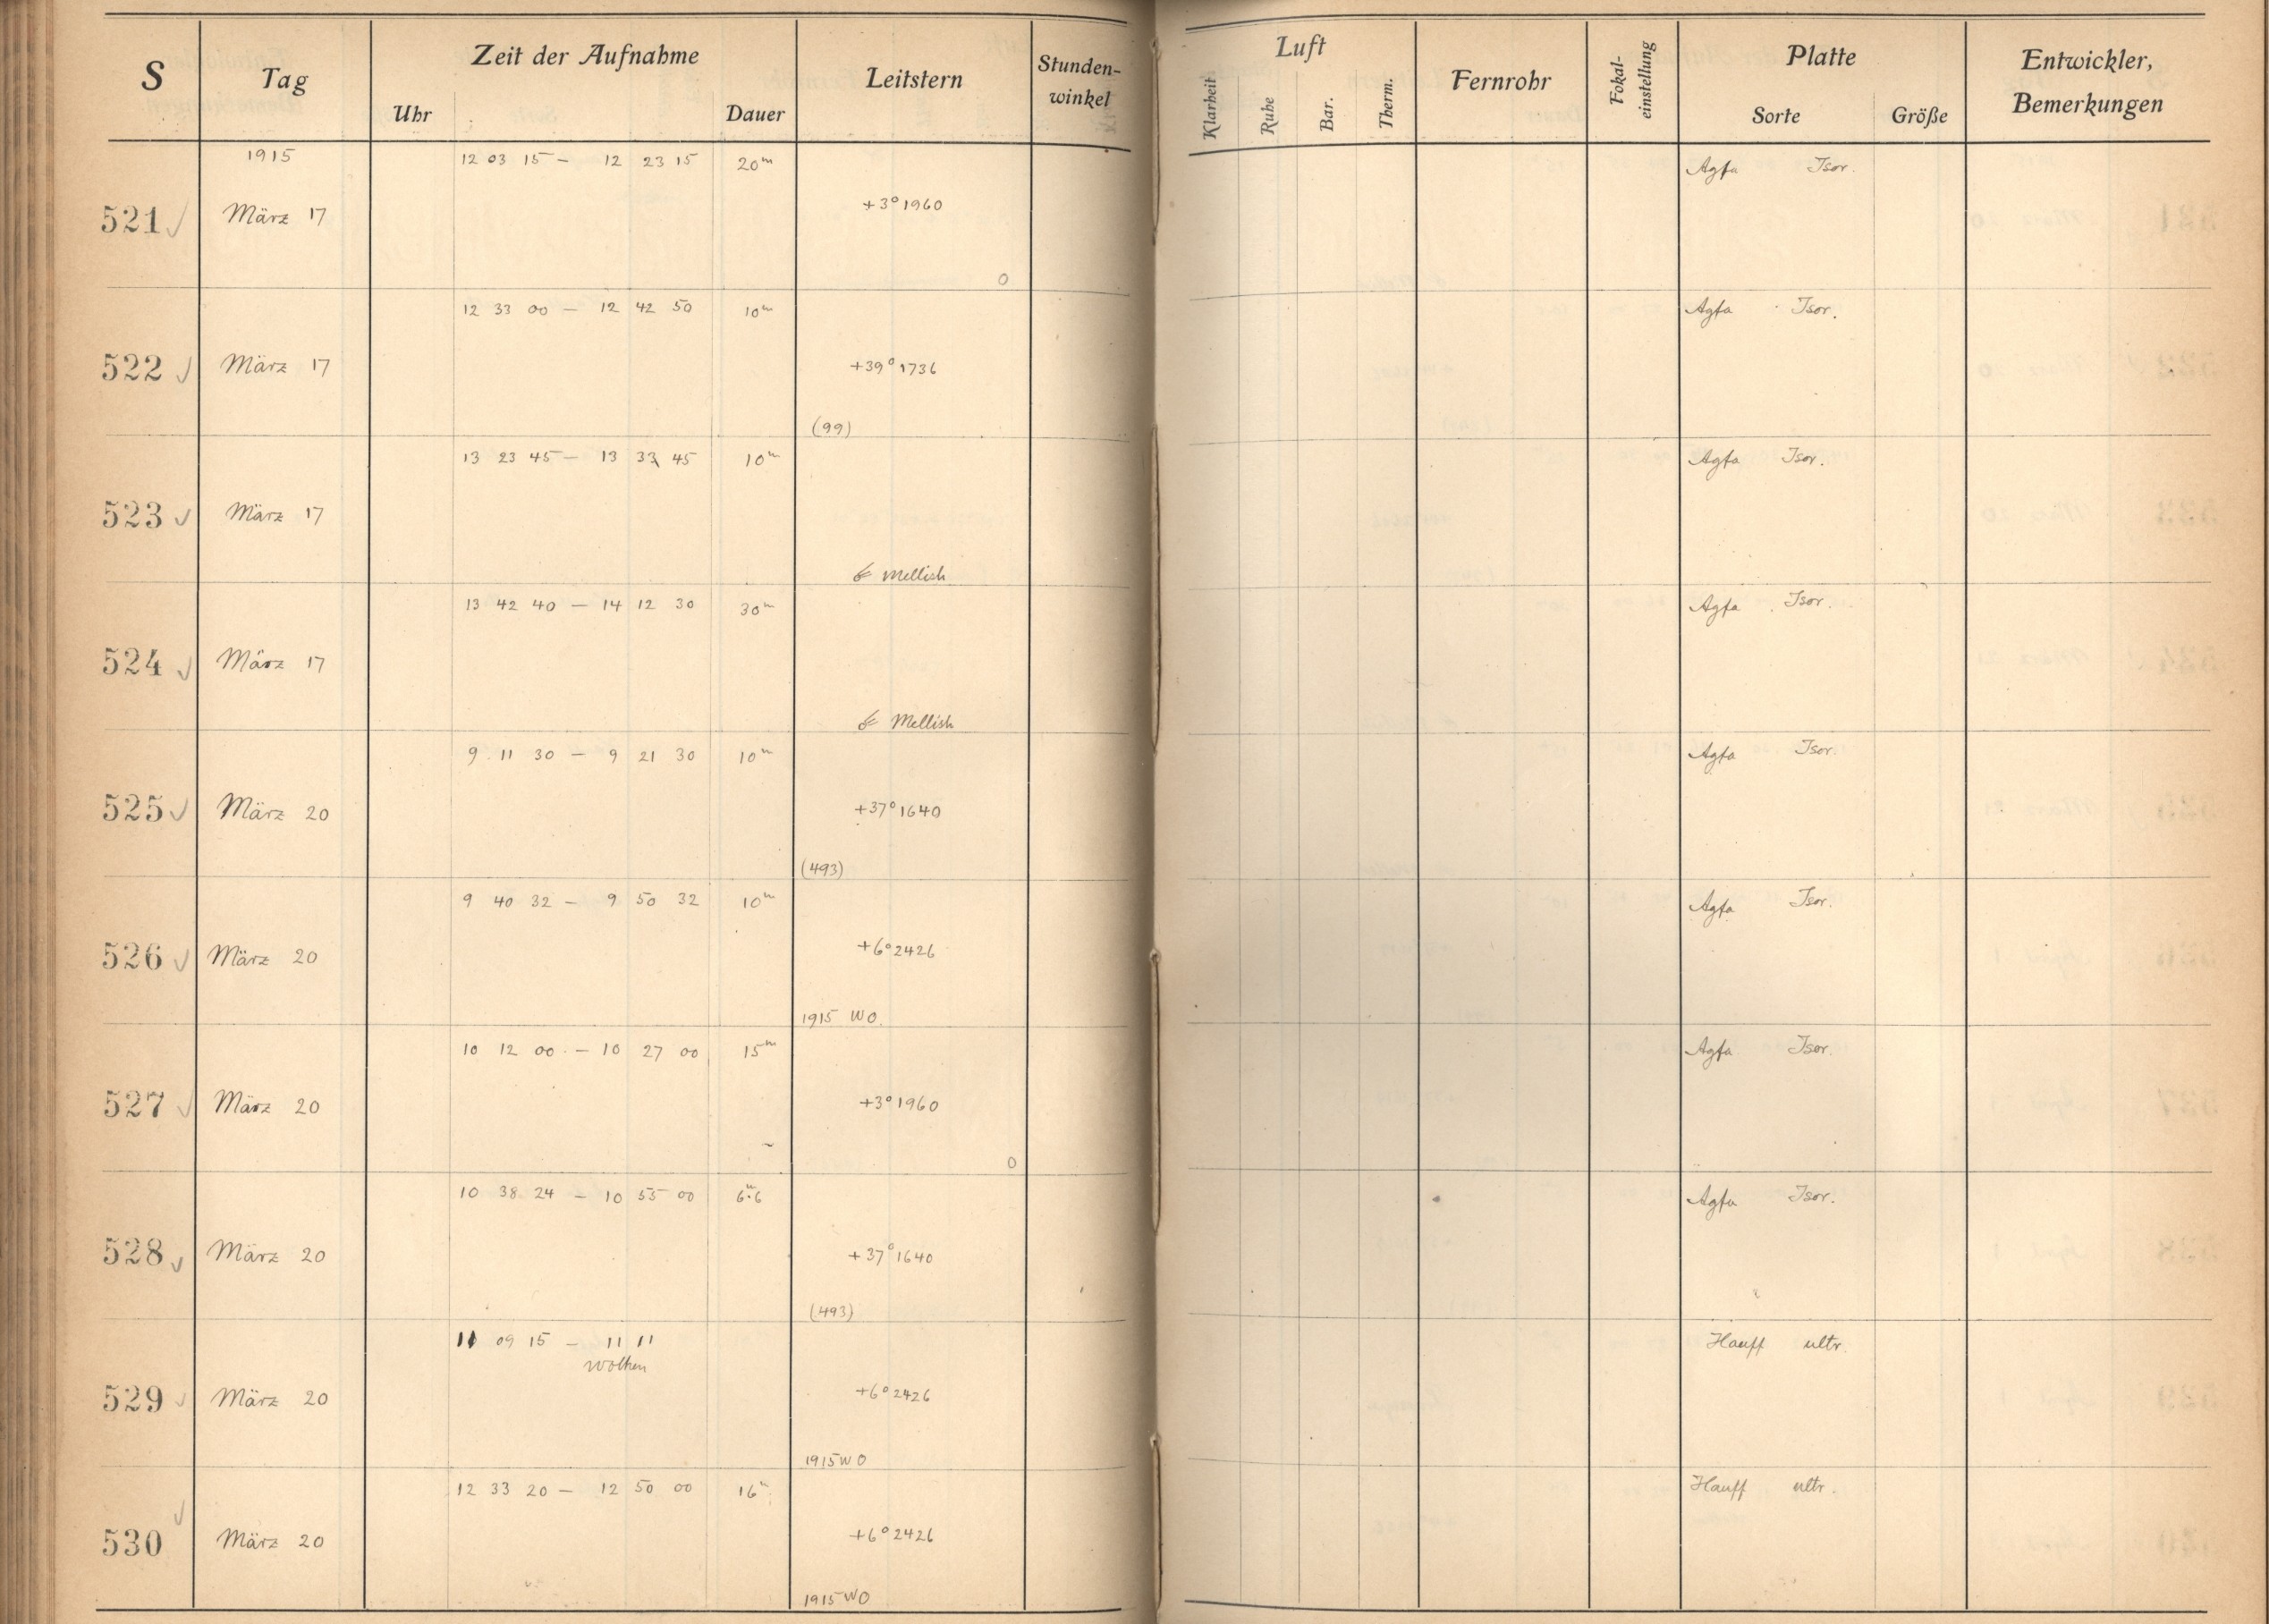 S Tag Zeit der Aufnahme Leitstern Stunden-winkel Luft Fernrohr Fokal-einstellung Platte Entwickler, Bemerkungen
Uhr Dauer Klarheit Ruhe Bar. Therm. Sorte Größe
1915 12 03 15 – 12 23 15 20m Agfa Isor.
521 März 17 +3° 1960
0
12 33 00 – 12 42 50 10m Agfa Isor.
522 März 17 +39° 1736
(99)
13 23 45 – 13 33 45 10m Agfa Isor.
523 März 17
Mellish
13 42 40 – 14 12 30 30m Agfa Isor.
524 März 17
Mellish
9 11 30 – 9 21 30 10m Agfa Isor.
525 März 20 +37° 1640
(493)
9 40 32 – 9 50 32 10m Agfa Isor.
526 März 20 +6° 2426
1915 WO
10 12 00 – 10 27 00 15m Agfa Isor.
527 März 20 +3° 1960
0
10 38 24 – 10 55 00 6m.6 Agfa Isor.
528 März 20 +37° 1640
(493)
11 09 15 – 11 11 Hauff ultr.
Wolken
529 März 20 +6° 2426
1915 WO
12 33 20 – 12 50 00 16m Hauff ultr.
530 März 20 +6° 2426
1915 WO